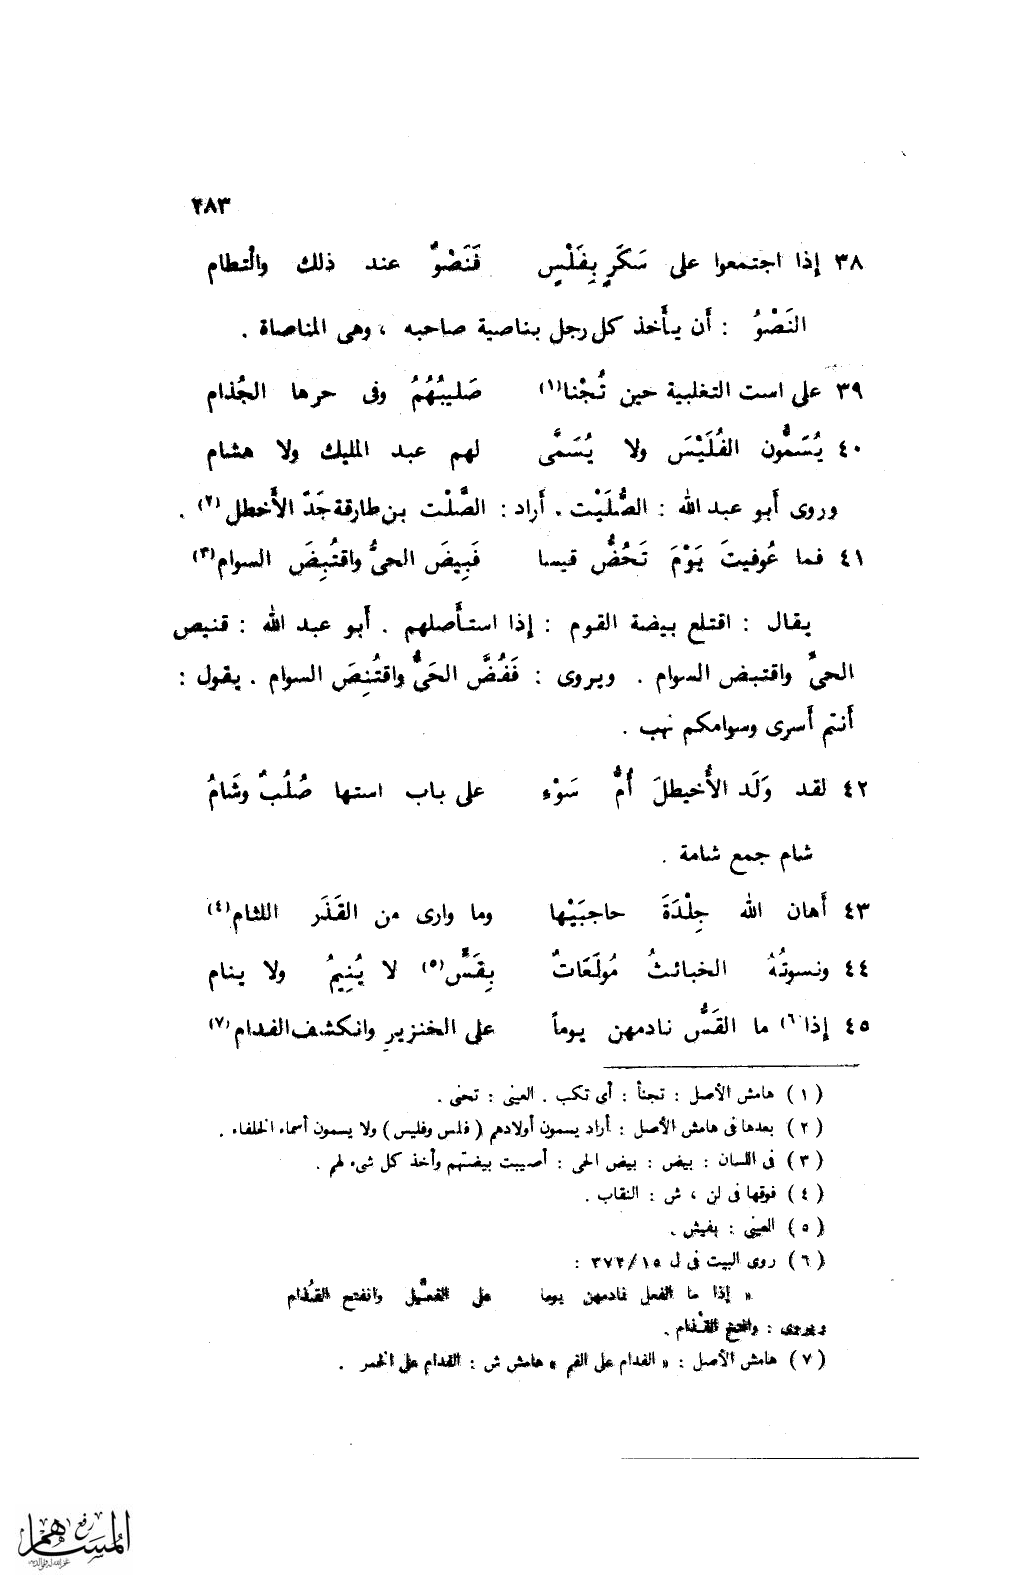 ٢٨٣
٣٨ إذا اجتمعوا على سَكَرٍ بِفَلْسٍ فَنَصْوٌ عند ذلك والْتطام
النَصْوُ : أن يأخذ كل رجل بناصية صاحبه ، وهى المناصاة .
٣٩ على است التغلبية حين تُجْنا(١) صَليبُهُمُ وفى حرها الجُذام
٤٠ يُسَمُّون الفُلَيْسَ ولا يُسَمَّى لهم عبد المليك ولا هشام
وروى أبو عبد الله : الصُّلَيْت . أراد : الصَّلْت بن طارقة جَدّ الأخطل(٢) .
٤١ فما عُوفيتَ يَوْمَ تَحُضُّ قيسا فَبِيضَ الحىُّ واقتُبِضَ السوام(٣)
يقال : اقتلع بيضة القوم : إذا استأصلهم . أبو عبد الله : قنيص
الحىُّ واقتبض السوام . ويروى : فَفُضَّ الحَىُّ واقتُنِصَ السوام . يقول :
أنتم أسرى وسوامكم نهب .
٤٢ لقد وَلَد الأُخيطلَ أُمُّ سَوْءٍ على باب استها صُلُبٌ وشَامُ
شام جمع شامة .
٤٣ أهان الله جِلْدَةَ حاجبَيْها وما وارى من القَذَر اللثام(٤)
٤٤ ونسوتُهُ الخبائثُ مُولَعَاتٌ بِقَسٍّ(٥) لا يُنِيمُ ولا ينام
٤٥ إذا(٦) ما القَسُّ نادمهن يوماً على الخنزيرِ وانكشف الفدام(٧)
(١) هامش الأصل : تجنأ : أى تكب . العينى : تحنى .
(٢) بعدها فى هامش الأصل : أراد يسمون أولادهم (فلس وفليس) ولا يسمون أسماء الخلفاء .
(٣) فى اللسان : بيض : بيض الحى : أصيبت بيضتهم وأخذ كل شىء لهم .
(٤) فوقها فى لن ، ش : النقاب .
(٥) العينى : بفيش .
(٦) روى البيت فى ل ٣٧٢/١٥ :
« إذا ما الفعل نادمهن يوما على الفعيل وانفتح القذام
ويروى : وافتح القذام .
(٧) هامش الأصل : « الفدام على الفم » هامش ش : الفدام على الخمر .